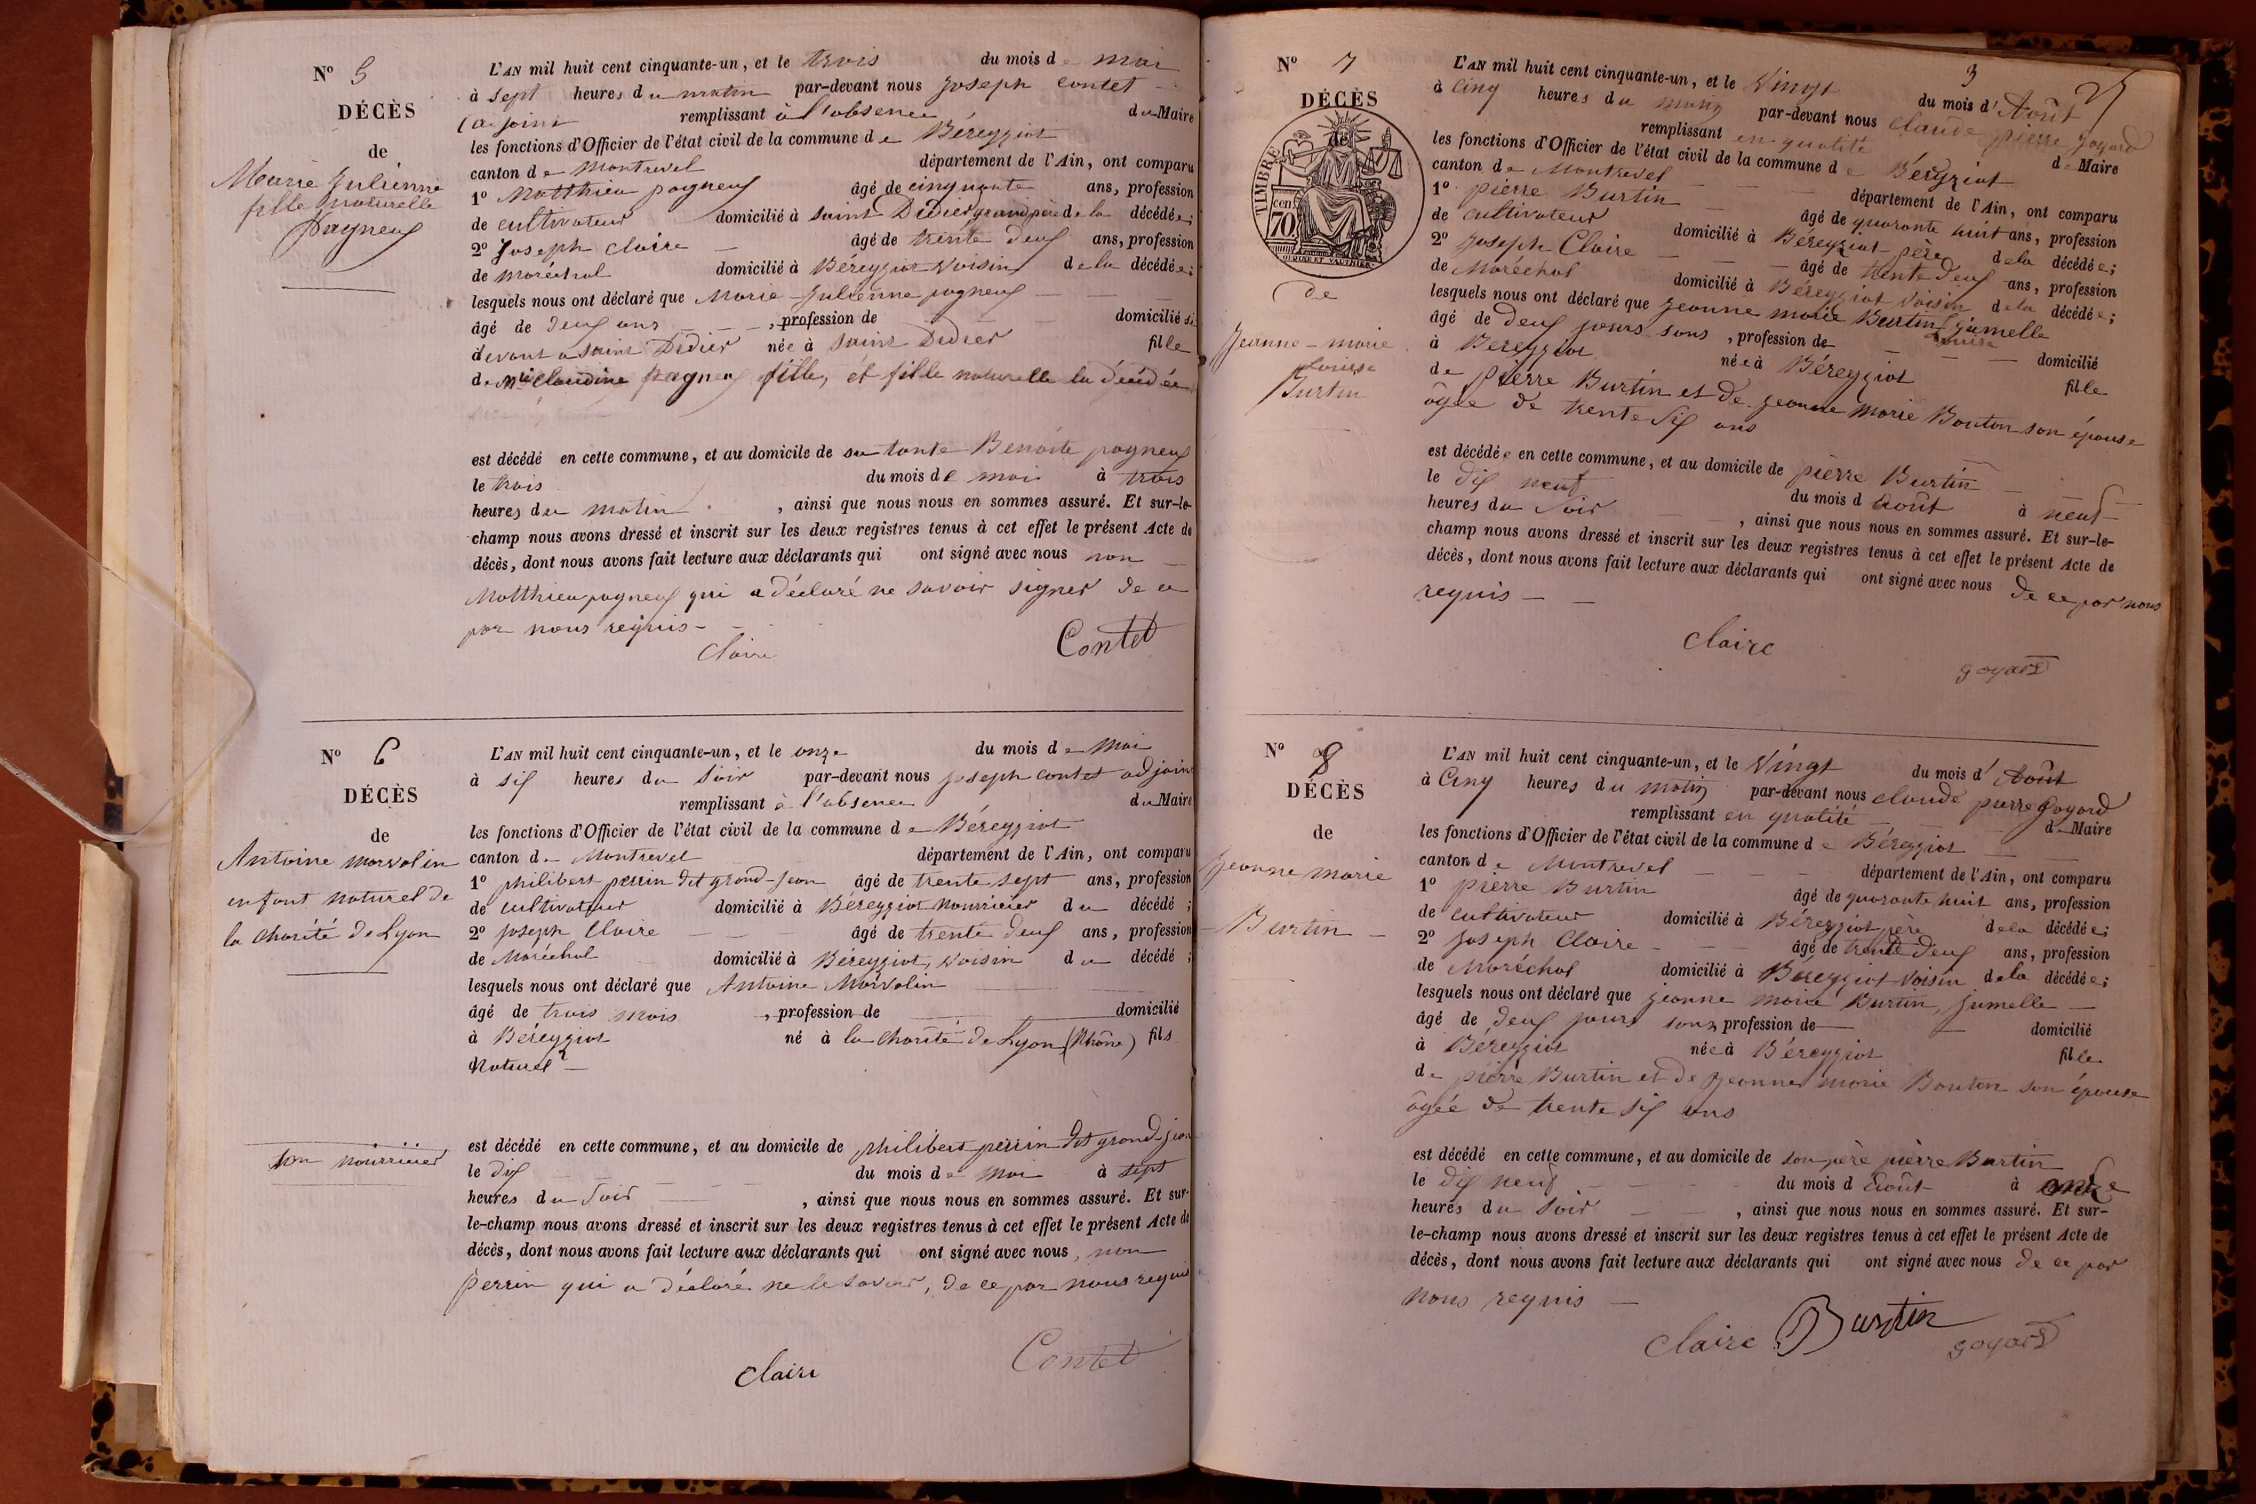 N° 5
DÉCÈS
de
Marie Julienne
fille naturelle
Pagneux
L'AN mil huit cent cinquante-un, et le trois du mois de mai
à sept heures du matin par-devant nous Joseph contet
adjoint remplissant à l'absence du Maire
les fonctions d'Officier de l'état civil de la commune de Béreyziat
canton de Montrevel département de l'Ain, ont comparu
1° Matthieu pagneux âgé de cinquante ans, profession
de cultivateur domicilié à saint Didier grand père de la décédée;
2° Joseph Claire âgé de trente deux ans, profession
de maréchal domicilié à Béreyziat Voisin de la décédée;
lesquels nous ont déclaré que Marie Julienne pagneux
âgé de deux ans , profession de domicilié
devant a saint Didier née à saint Didier fille
de Mie Claudine pagneux fille, et fille naturelle la décédée
est décédé en cette commune, et au domicile de sa tante Benoite pagneux
le trois du mois de mai à trois
heures du matin , ainsi que nous nous en sommes assuré. Et sur-le-
champ nous avons dressé et inscrit sur les deux registres tenus à cet effet le présent Acte de
décès, dont nous avons fait lecture aux déclarants qui ont signé avec nous non
Matthieu pagneux qui a déclaré ne savoir signer de ce
par nous requis
Claire Contet
N° 6
DÉCÈS
de
Antoine morvolin
enfant naturel de
la charité de Lyon
L'AN mil huit cent cinquante-un, et le onze du mois de Mai
à six heures du Soir par-devant nous Joseph contet adjoint
remplissant à l'absence du Maire
les fonctions d'Officier de l'état civil de la commune de Béreyziat
canton de Montrevel département de l'Ain, ont comparu
1° philibert perrin dit grand-Jean âgé de trente sept ans, profession
de cultivateur domicilié à Béreyziat Nourricier du décédé;
2° Joseph Claire âgé de trente deux ans, profession
de Maréchal domicilié à Béreyziat, Voisin du décédé;
lesquels nous ont déclaré que Antoine Morvolin
âgé de trois mois , profession de domicilié
à Béreyziat né à la charité de Lyon (Rhône) fils
Naturel
son nourricier
est décédé en cette commune, et au domicile de philibert perrin dit grand-jean
le dix du mois de Mai à sept
heures du Soir , ainsi que nous nous en sommes assuré. Et sur-
le-champ nous avons dressé et inscrit sur les deux registres tenus à cet effet le présent Acte de
décès, dont nous avons fait lecture aux déclarants qui ont signé avec nous, non
perrin qui a déclaré ne le savoir, de ce par nous requis
Claire Contet
3
N° 7
DÉCÈS
de
TIMBRE
cen
70
OUDINE ET VAUTHIER
de
Jeanne-marie
Louise
Burtin
L'AN mil huit cent cinquante-un, et le Vingt du mois d'Août
à Cinq heures du matin par-devant nous claude pierre goyard
remplissant en qualité de Maire
les fonctions d'Officier de l'état civil de la commune de Béreyziat
canton de Montrevel département de l'Ain, ont comparu
1° pierre Burtin âgé de quarante huit ans, profession
de cultivateur domicilié à Béreyziat père de la décédée;
2° Joseph Claire âgé de trente deux ans, profession
de Maréchal domicilié à Béreyziat Voisin de la décédée;
lesquels nous ont déclaré que Jeanne marie Burtin jumelle
Louise
âgé de deux jours sans , profession de domicilié
à Béreyziat née à Béreyziat fille
de pierre Burtin et de Jeanne Marie Bouton son épouse
âgée de trente six ans
est décédée en cette commune, et au domicile de pierre Burtin
le dix neuf du mois d'Août à neuf
heures du Soir , ainsi que nous nous en sommes assuré. Et sur-le-
champ nous avons dressé et inscrit sur les deux registres tenus à cet effet le présent Acte de
décès, dont nous avons fait lecture aux déclarants qui ont signé avec nous de ce par nous
requis
Claire
goyard
N° 8
DÉCÈS
de
Jeanne Marie
Burtin
L'AN mil huit cent cinquante-un, et le Vingt du mois d'Août
à Cinq heures du matin par-devant nous claude pierre Goyard
remplissant en qualité de Maire
les fonctions d'Officier de l'état civil de la commune de Béreyziat
canton de Montrevel département de l'Ain, ont comparu
1° pierre Burtin âgé de quarante huit ans, profession
de cultivateur domicilié à Béreyziat père de la décédée;
2° Joseph Claire âgé de trente deux ans, profession
de Maréchal domicilié à Béreyziat Voisin de la décédée;
lesquels nous ont déclaré que Jeanne Marie Burtin, jumelle
âgé de deux jours sans profession de domicilié
à Béreyziat née à Béreyziat fille
de pierre Burtin et de Jeanne Marie Bouton son épouse
âgée de trente six ans
est décédé en cette commune, et au domicile de son père pierre Burtin
le dix neuf du mois d'Août à onze
heures du Soir , ainsi que nous nous en sommes assuré. Et sur-
le-champ nous avons dressé et inscrit sur les deux registres tenus à cet effet le présent Acte de
décès, dont nous avons fait lecture aux déclarants qui ont signé avec nous de ce par
nous requis
Claire Burtin goyard